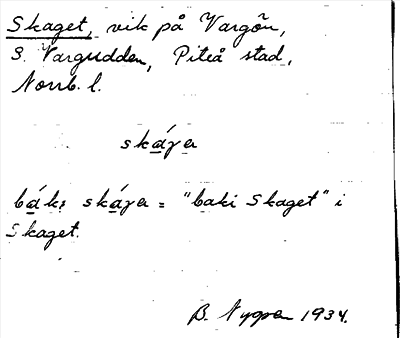 Skaget, vik på Vargön,
S. Vargudden, Piteå stad,
Norrb. l.
skáγa
bák: skáγa = "baki Skaget" i
Skaget.
B. Nygren 1934.